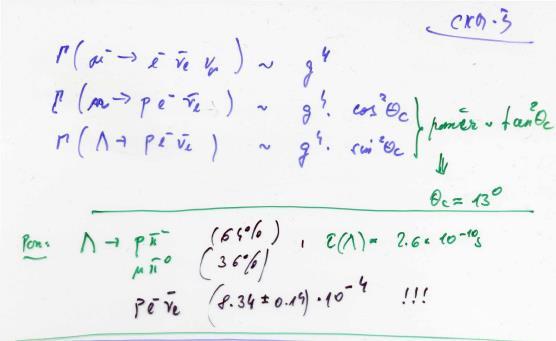 CKM-3
Γ(μ⁻ → e⁻ ν̄e νμ) ~ g⁴
Γ(n → p e⁻ ν̄e) ~ g⁴. cos²θc
Γ(Λ → p e⁻ ν̄e) ~ g⁴. sin²θc
pomēr ~ tan²θc
⇓
θc = 13°
Pozn: Λ → p π⁻ (64%) , τ(Λ) = 2.6 × 10⁻¹⁰ s
n π⁰ (36%)
p e⁻ ν̄e (8.34 ± 0.14) · 10⁻⁴ !!!